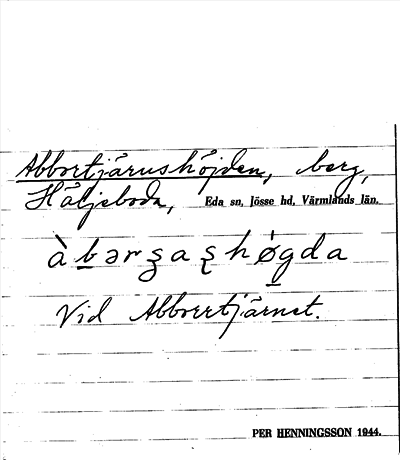 Abbortjärnshöjden, berg,
Häljeboda, Eda sn, Jösse hd, Värmlands län.
Vid Abborrtjärnet.
PER HENNINGSSON 1944.